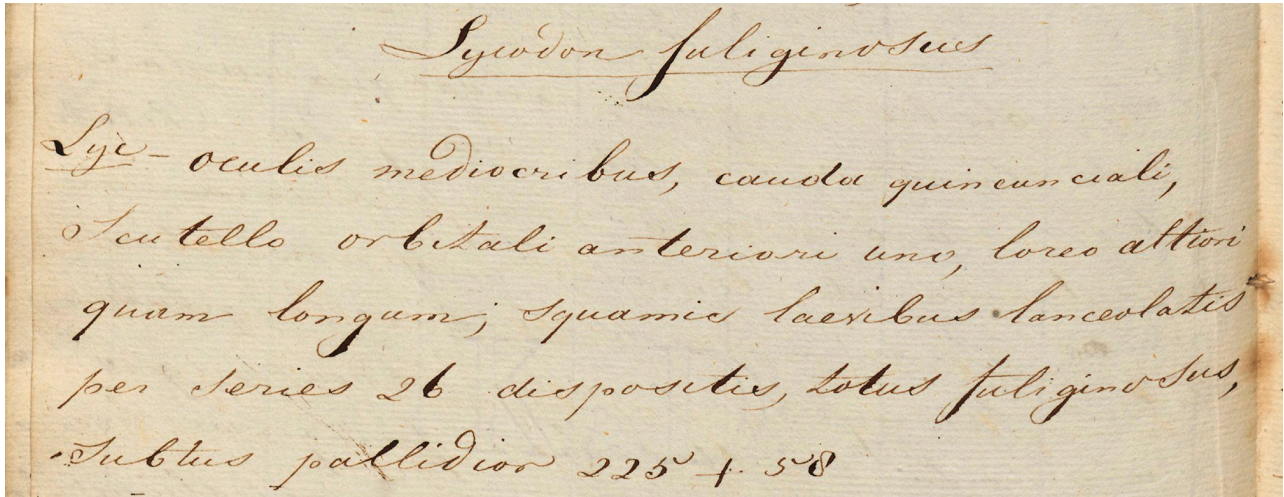 Lycodon fuliginosus
Lyc - oculis mediocribus, cauda quincunciali,
Scutello orbitali anteriori uno, loreo altiori
quam longum; squamis laevibus lanceolatis
per series 26 dispositis, totus fuliginosus,
Subtus pallidior 225 + 58